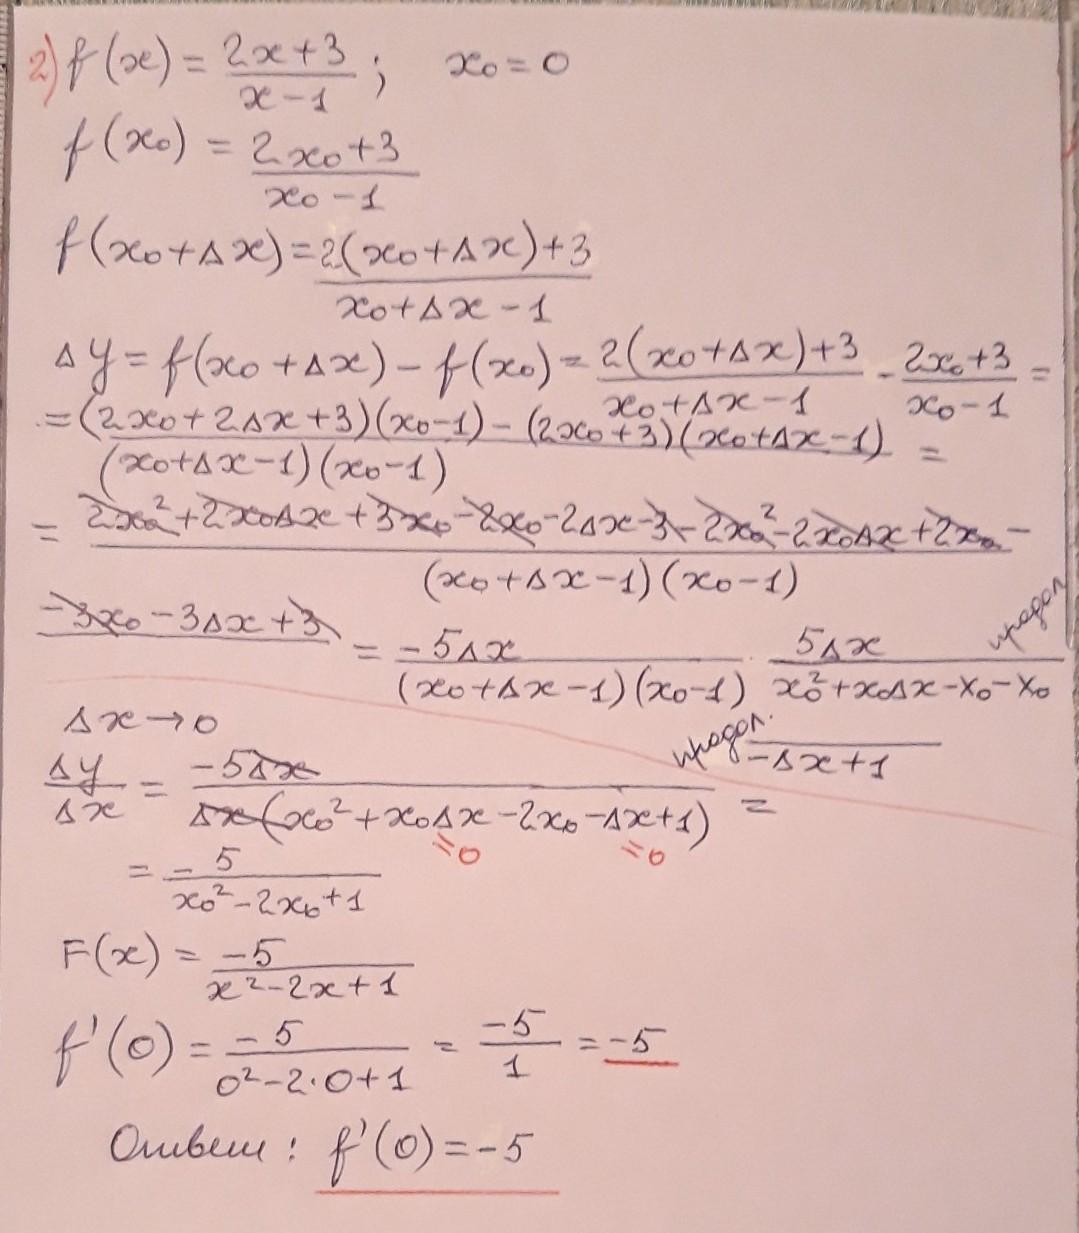 2) f(x) = (2x+3)/(x-1) ; x₀ = 0
f(x₀) = (2x₀+3)/(x₀-1)
f(x₀+Δx) = (2(x₀+Δx)+3)/(x₀+Δx-1)
Δy = f(x₀+Δx) - f(x₀) = (2(x₀+Δx)+3)/(x₀+Δx-1) - (2x₀+3)/(x₀-1) =
= ((2x₀+2Δx+3)(x₀-1) - (2x₀+3)(x₀+Δx-1))/((x₀+Δx-1)(x₀-1)) =
= (2x₀²+2x₀Δx+3x₀-2x₀-2Δx-3-2x₀²-2x₀Δx+2x₀-)/((x₀+Δx-1)(x₀-1))
-3x₀-3Δx+3 = (-5Δx)/((x₀+Δx-1)(x₀-1)) · (5Δx)/(x₀²+x₀Δx-x₀-x₀ продол.
продол. -Δx+1
Δx→0
Δy/Δx = (-5Δx)/(Δx(x₀²+x₀Δx-2x₀-Δx+1)) =
=0 =0
= (-5)/(x₀²-2x₀+1)
F(x) = (-5)/(x²-2x+1)
f'(0) = (-5)/(0²-2·0+1) = (-5)/1 = -5
Ответ: f'(0) = -5